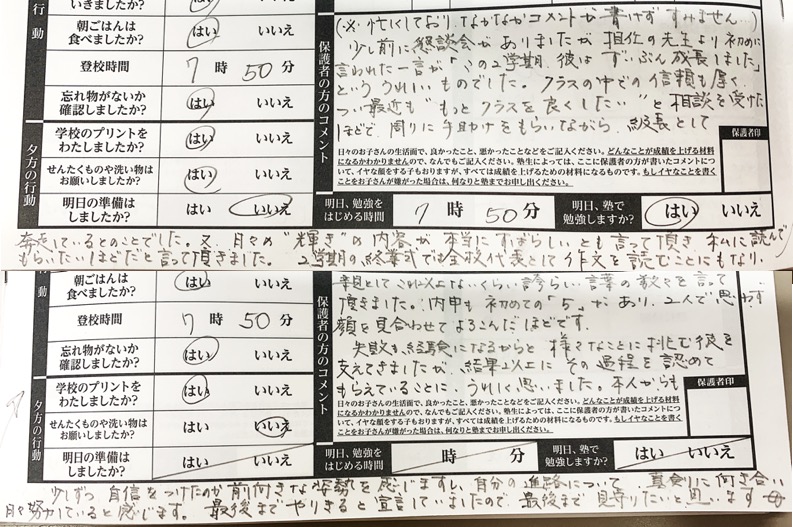 いきましたか?
はい いいえ
朝ごはんは
食べましたか?
はい いいえ
登校時間
7時50分
忘れ物がないか
確認しましたか?
はい いいえ
行動
夕方の行動
学校のプリントを
わたしましたか?
はい いいえ
せんたくものや洗い物は
お願いしましたか?
はい いいえ
明日の準備は
しましたか?
はい いいえ
保護者の方のコメント
(※忙しくしており、なかなかコメントが書けず すみません…)
少し前に懇談会がありましたが 担任の先生より初めに
言われた一言が「この2学期、彼は ずいぶん成長しました」
という うれしいものでした。クラスの中での信頼も厚く、
つい最近も"もっとクラスを良くしたい"と相談を受けた
ほどで、周りに手助けをもらいながら、級長として
保護者印
日々のお子さんの生活面で、良かったこと、悪かったことなどをご記入ください。どんなことが成績を上げる材料
になるかわかりませんので、なんでもご記入ください。塾生によっては、ここに保護者の方が書いたコメントにつ
いて、イヤな顔をする子もおりますが、すべては成績を上げるための材料になるものです。もしイヤなことを書く
ことをお子さんが嫌がった場合は、何なりと塾までお申し出ください。
明日、勉強を
はじめる時間
7時50分
明日、塾で
勉強しますか?
はい いいえ
奔走しているとのことでした。又、月々の"輝き"の内容が 本当にすばらしいとも言って頂き、私に読んで
もらいたいほどだと言って頂きました。2学期の終業式では全校代表として作文を読むことにもなり、
朝ごはんは
食べましたか?
はい いいえ
登校時間
7時50分
忘れ物がないか
確認しましたか?
はい いいえ
動
夕方の行動
学校のプリントを
わたしましたか?
はい いいえ
せんたくものや洗い物は
お願いしましたか?
はい いいえ
明日の準備は
しましたか?
はい いいえ
保護者の方のコメント
親としてこれ以上ないくらい、誇らしい言葉の数々を言って
頂きました。内申も初めての「5」があり、2人で思わず
顔を見合わせてよろこんだほどです。
失敗も経験になるからと 様々なことに挑む彼を
支えてきましたが、結果以上に その過程を認めて
もらえていることに、うれしく思いました。本人からも
保護者印
日々のお子さんの生活面で、良かったこと、悪かったことなどをご記入ください。どんなことが成績を上げる材料
になるかわかりませんので、なんでもご記入ください。塾生によっては、ここに保護者の方が書いたコメントにつ
いて、イヤな顔をする子もおりますが、すべては成績を上げるための材料になるものです。もしイヤなことを書く
ことをお子さんが嫌がった場合は、何なりと塾までお申し出ください。
明日、勉強を
はじめる時間
時 分
明日、塾で
勉強しますか?
はい いいえ
少しずつ 自信をつけたのか前向きな姿勢を感じますし、自分の進路について、真剣に向き合い
日々努力していると感じます。最後までやりきると宣言していましたので、最後まで見守りたいと思います 母